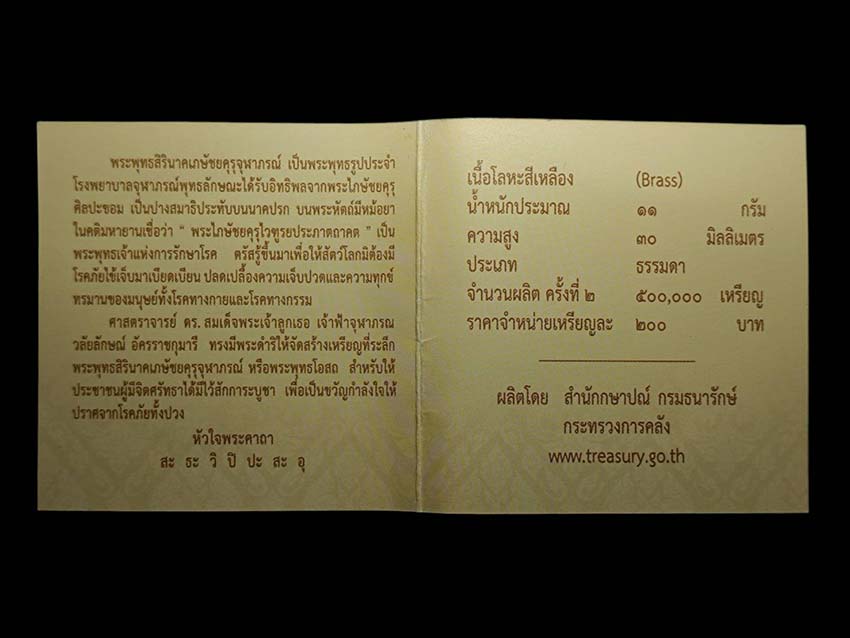 พระพุทธสิรินาคเภษัชยคุรุจุฬาภรณ์ เป็นพระพุทธรูปประจำ
โรงพยาบาลจุฬาภรณ์พุทธลักษณะได้รับอิทธิพลจากพระไภษัชยคุรุ
ศิลปะขอม เป็นปางสมาธิประทับบนนาคปรก บนพระหัตถ์มีหม้อยา
ในคติมหายานเชื่อว่า " พระไภษัชยคุรุไวฑูรยประภาตถาคต " เป็น
พระพุทธเจ้าแห่งการรักษาโรค ตรัสรู้ขึ้นมาเพื่อให้สัตว์โลกมิต้องมี
โรคภัยไข้เจ็บมาเบียดเบียน ปลดเปลื้องความเจ็บปวดและความทุกข์
ทรมานของมนุษย์ทั้งโรคทางกายและโรคทางกรรม
ศาสตราจารย์ ดร. สมเด็จพระเจ้าลูกเธอ เจ้าฟ้าจุฬาภรณ
วลัยลักษณ์ อัครราชกุมารี ทรงมีพระดำริให้จัดสร้างเหรียญที่ระลึก
พระพุทธสิรินาคเภษัชยคุรุจุฬาภรณ์ หรือพระพุทธโอสถ สำหรับให้
ประชาชนผู้มีจิตศรัทธาได้มีไว้สักการะบูชา เพื่อเป็นขวัญกำลังใจให้
ปราศจากโรคภัยทั้งปวง
หัวใจพระคาถา
สะ ธะ วิ ปิ ปะ สะ อุ
เนื้อโลหะสีเหลือง (Brass)
น้ำหนักประมาณ ๑๑ กรัม
ความสูง ๓๐ มิลลิเมตร
ประเภท ธรรมดา
จำนวนผลิต ครั้งที่ ๒ ๕๐๐,๐๐๐ เหรียญ
ราคาจำหน่ายเหรียญละ ๒๐๐ บาท
ผลิตโดย สำนักกษาปณ์ กรมธนารักษ์
กระทรวงการคลัง
www.treasury.go.th